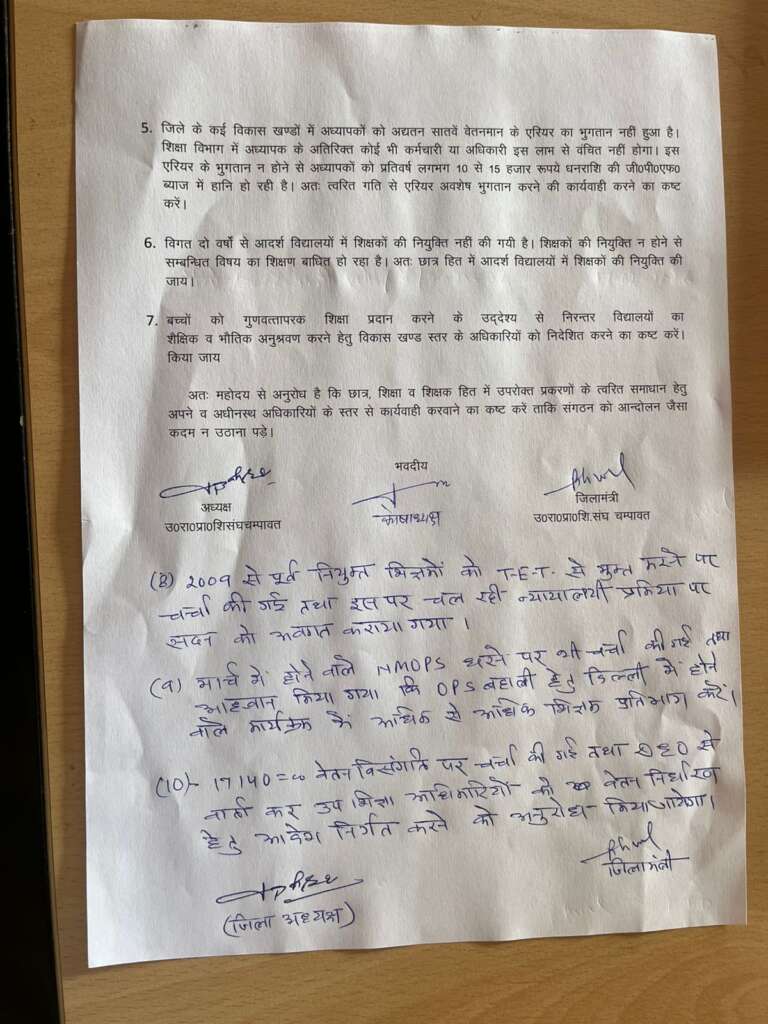 5. जिले के कई विकास खण्डों में अध्यापकों को अद्यतन सातवें वेतनमान के एरियर का भुगतान नहीं हुआ है।
शिक्षा विभाग में अध्यापक के अतिरिक्त कोई भी कर्मचारी या अधिकारी इस लाभ से वंचित नहीं होगा। इस
एरियर के भुगतान न होने से अध्यापकों को प्रतिवर्ष लगभग 10 से 15 हजार रूपये धनराशि की जी0पी0एफ0
ब्याज में हानि हो रही है। अतः त्वरित गति से एरियर अवशेष भुगतान करने की कार्यवाही करने का कष्ट
करें।
6. विगत दो वर्षो से आदर्श विद्यालयों में शिक्षकों की नियुक्ति नहीं की गयी है। शिक्षकों की नियुक्ति न होने से
सम्बन्धित विषय का शिक्षण बाधित हो रहा है। अतः छात्र हित में आदर्श विद्यालयों में शिक्षकों की नियुक्ति की
जाय।
7. बच्चों को गुणवत्तापरक शिक्षा प्रदान करने के उद्देश्य से निरन्तर विद्यालयों का
शैक्षिक व भौतिक अनुश्रवण करने हेतु विकास खण्ड स्तर के अधिकारियों को निदेशित करने का कष्ट करें।
किया जाय
अतः महोदय से अनुरोध है कि छात्र, शिक्षा व शिक्षक हित में उपरोक्त प्रकरणों के त्वरित समाधान हेतु
अपने व अधीनस्थ अधिकारियों के स्तर से कार्यवाही करवाने का कष्ट करें ताकि संगठन को आन्दोलन जैसा
कदम न उठाना पड़े।
भवदीय
अध्यक्ष कोषाध्यक्ष जिलामंत्री
उ0रा0प्रा0शिसंघचम्पावत उ0रा0प्रा0शि.संघ चम्पावत
(8) 2009 से पूर्व नियुक्त शिक्षकों को T-E-T- से मुक्त करने पर
चर्चा की गई तथा इस पर चल रही न्यायालयी प्रक्रिया पर
सदन को अवगत कराया गया।
(9) मार्च में होने वाले NMOPS धरने पर भी चर्चा की गई तथा
आह्वान किया गया कि OPS बहाली हेतु दिल्ली में होने
वाले कार्यक्रम में अधिक से अधिक शिक्षक प्रतिभाग करें।
(10)- 17140=00 वेतन विसंगति पर चर्चा की गई तथा से
वार्ता कर उप शिक्षा अधिकारियों को वेतन निर्धारण
हेतु आदेश निर्गत करने को अनुरोध किया जायेगा।
जिलामंत्री
(जिला अध्यक्ष)